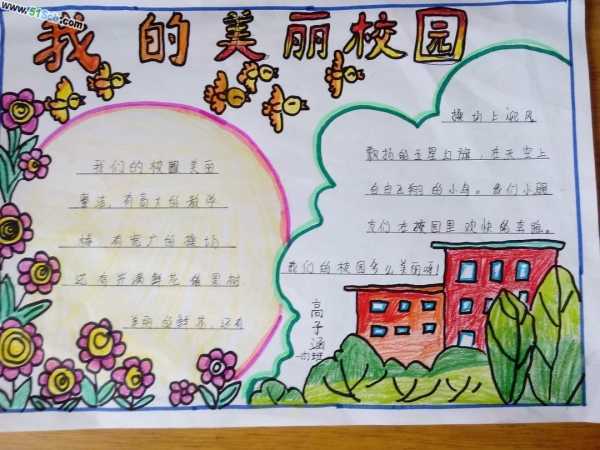 www.51Sch.com
我的美丽校园
我们的校园美丽
整洁,有高大的教学
楼,有宽广的操场
还有开满鲜花的果树
美丽的鲜花,还有
操场上迎风
飘扬的五星红旗,在天空上
自由飞翔的小鸟。我们小朋
友们在校园里欢快的
我们的校园多么美丽呀!
高子涵